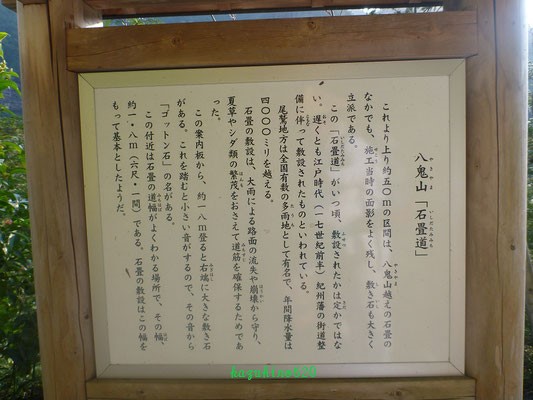 八鬼山「石畳道」
これより上り約五〇mの区間は、八鬼山越えの石畳の
なかでも、施工当時の面影をよく残し、敷き石も大きく
立派である。
この「石畳道」がいつ頃、敷設されたかは定かではな
い。遅くとも江戸時代（一七世紀前半）紀州藩の街道整
備に伴って敷設されたものといわれている。
尾鷲地方は全国有数の多雨地として有名で、年間降水量は
四〇〇〇ミリを越える。
石畳の敷設は、大雨による路面の流失や崩壊から守り、
夏草やシダ類の繁茂をおさえて道筋を確保するためであ
った。
この案内板から、約一八m登ると右端に大きな敷き石
がある。これを踏むと小さい音がするので、その音から
「ゴットン石」の名がある。
この付近は石畳の道幅がよくわかる場所で、その幅、
約一・八m（六尺・一間）である。石畳の敷設はこの幅を
もって基本としたようだ。